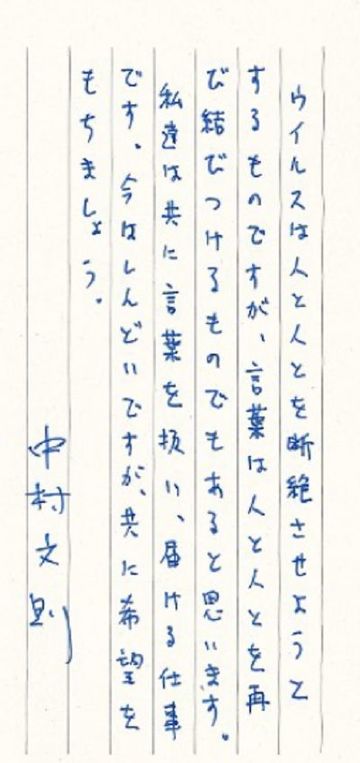 ウイルスは人と人とを断絶させようと
するものですが、言葉は人と人とを再
び結びつけるものでもあると思います。
私達は共に言葉を扱い、届ける仕事
です。今はしんどいですが、共に希望を
もちましょう。
中村文則